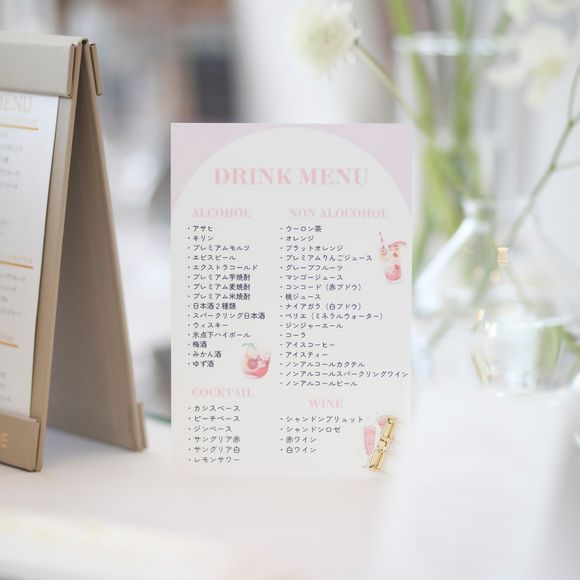 MENU
DRINK MENU
ALCOHOL
・アサヒ
・キリン
・プレミアムモルツ
・エビスビール
・エクストラコールド
・プレミアム芋焼酎
・プレミアム麦焼酎
・プレミアム米焼酎
・日本酒２種類
・スパークリング日本酒
・ウィスキー
・氷点下ハイボール
・梅酒
・みかん酒
・ゆず酒
COCKTAIL
・カシスベース
・ピーチベース
・ジンベース
・サングリア赤
・サングリア白
・レモンサワー
NON ALOCOHOL
・ウーロン茶
・オレンジ
・ブラットオレンジ
・プレミアムりんごジュース
・グレープフルーツ
・マンゴージュース
・コンコード（赤ブドウ）
・桃ジュース
・ナイアガラ（白ブドウ）
・ペリエ（ミネラルウォーター）
・ジンジャーエール
・コーラ
・アイスコーヒー
・アイスティー
・ノンアルコールカクテル
・ノンアルコールスパークリングワイン
・ノンアルコールビール
WINE
・シャンドンブリュット
・シャンドンロゼ
・赤ワイン
・白ワイン